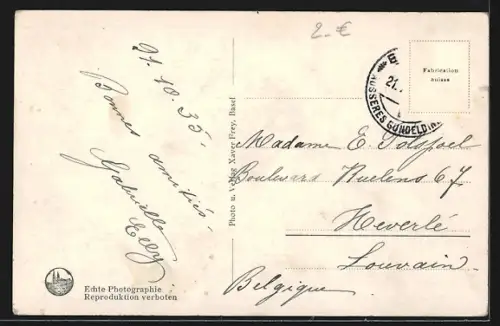 2.-€
21.10.35.
Bonnes amitiés.
Gabrielle
Elly
Echte Photographie
Reproduktion verboten
Photo u. Verlag Xaver Frey, Basel
21.
ÄUSSERES GUNDELDIN
Fabrication
suisse
Madame E.
Boulevard Ruelens 67
Heverlé
Louvain.
Belgique